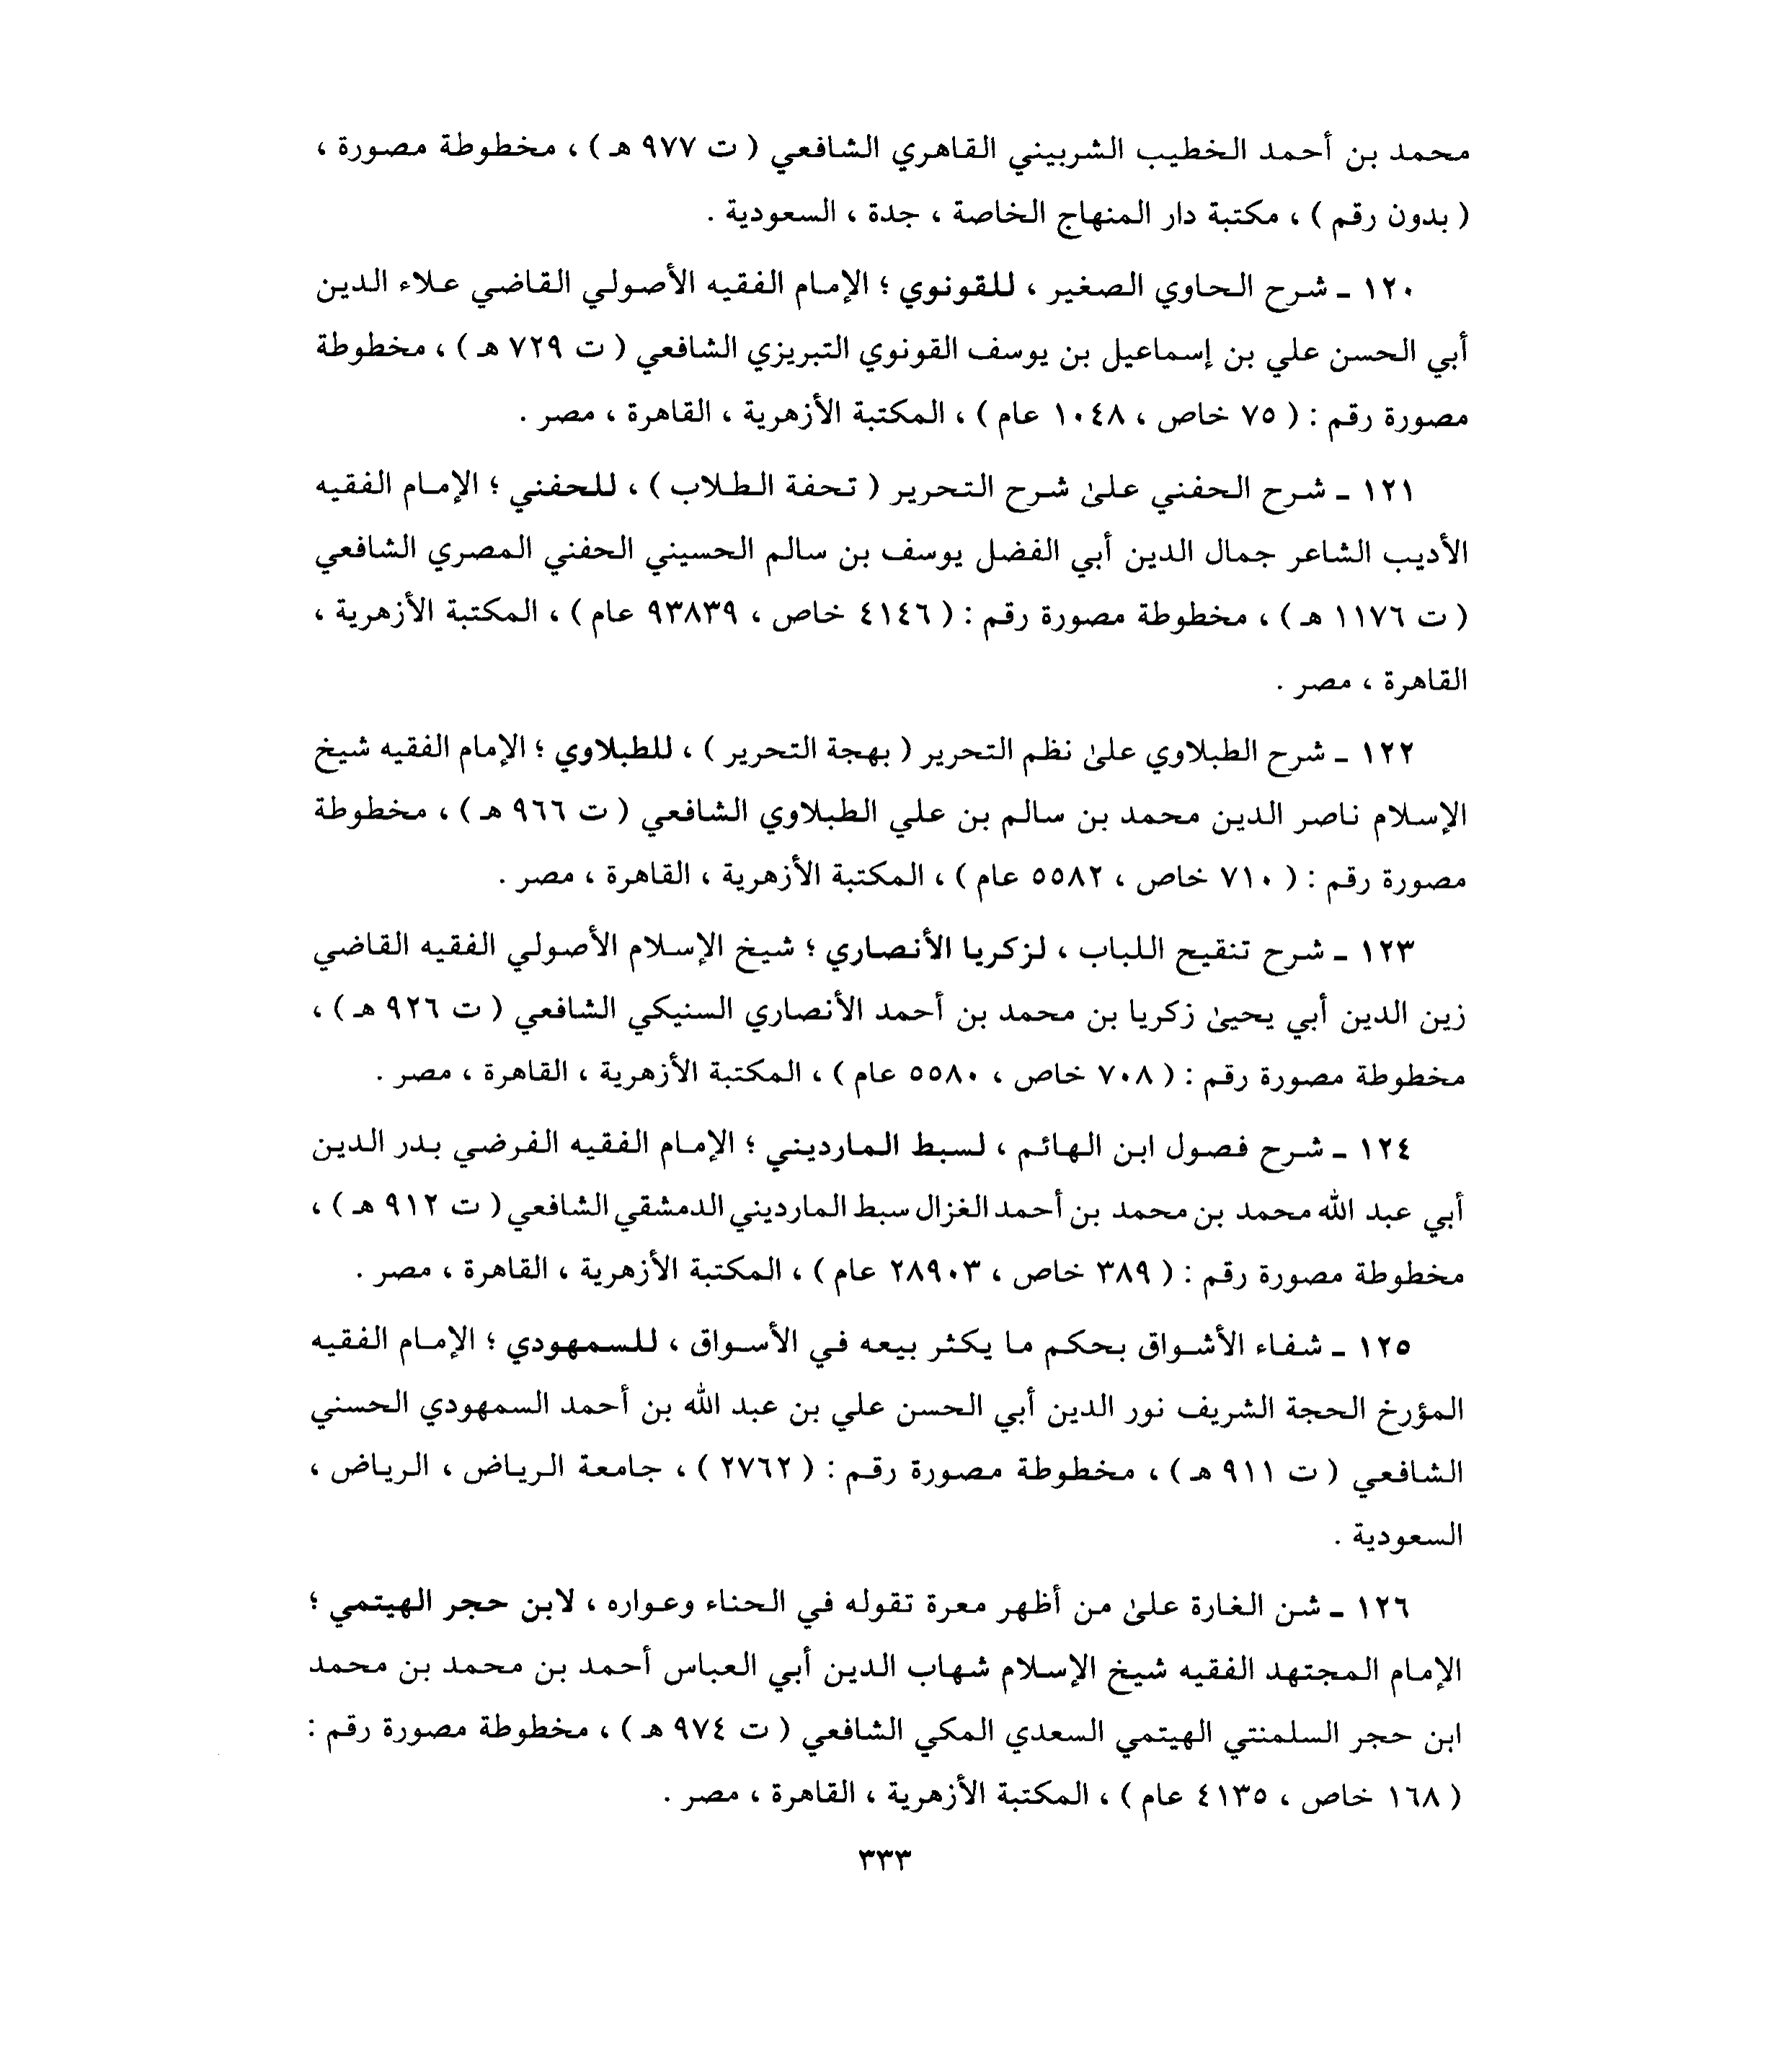 محمد بن أحمد الخطيب الشربيني القاهري الشافعي ( ت ٩٧٧ هـ ) ، مخطوطة مصورة ،
( بدون رقم ) ، مكتبة دار المنهاج الخاصة ، جدة ، السعودية .
١٢٠ ـ شرح الحاوي الصغير ، للقونوي ؛ الإمام الفقيه الأصولي القاضي علاء الدين
أبي الحسن علي بن إسماعيل بن يوسف القونوي التبريزي الشافعي ( ت ٧٢٩ هـ ) ، مخطوطة
مصورة رقم : ( ٧٥ خاص ، ١٠٤٨ عام ) ، المكتبة الأزهرية ، القاهرة ، مصر .
١٢١ ـ شرح الحفني علىٰ شرح التحرير ( تحفة الطلاب ) ، للحفني ؛ الإمام الفقيه
الأديب الشاعر جمال الدين أبي الفضل يوسف بن سالم الحسيني الحفني المصري الشافعي
( ت ١١٧٦ هـ ) ، مخطوطة مصورة رقم : ( ٤١٤٦ خاص ، ٩٣٨٣٩ عام ) ، المكتبة الأزهرية ،
القاهرة ، مصر .
١٢٢ ـ شرح الطبلاوي علىٰ نظم التحرير ( بهجة التحرير ) ، للطبلاوي ؛ الإمام الفقيه شيخ
الإسلام ناصر الدين محمد بن سالم بن علي الطبلاوي الشافعي ( ت ٩٦٦ هـ ) ، مخطوطة
مصورة رقم : ( ٧١٠ خاص ، ٥٥٨٢ عام ) ، المكتبة الأزهرية ، القاهرة ، مصر .
١٢٣ ـ شرح تنقيح اللباب ، لزكريا الأنصاري ؛ شيخ الإسلام الأصولي الفقيه القاضي
زين الدين أبي يحيىٰ زكريا بن محمد بن أحمد الأنصاري السنيكي الشافعي ( ت ٩٢٦ هـ ) ،
مخطوطة مصورة رقم : ( ٧٠٨ خاص ، ٥٥٨٠ عام ) ، المكتبة الأزهرية ، القاهرة ، مصر .
١٢٤ ـ شرح فصول ابن الهائم ، لسبط المارديني ؛ الإمام الفقيه الفرضي بدر الدين
أبي عبد الله محمد بن محمد بن أحمد الغزال سبط المارديني الدمشقي الشافعي ( ت ٩١٢ هـ ) ،
مخطوطة مصورة رقم : ( ٣٨٩ خاص ، ٢٨٩٠٣ عام ) ، المكتبة الأزهرية ، القاهرة ، مصر .
١٢٥ ـ شفاء الأشواق بحكم ما يكثر بيعه في الأسواق ، للسمهودي ؛ الإمام الفقيه
المؤرخ الحجة الشريف نور الدين أبي الحسن علي بن عبد الله بن أحمد السمهودي الحسني
الشافعي ( ت ٩١١ هـ ) ، مخطوطة مصورة رقم : ( ٢٧٦٢ ) ، جامعة الرياض ، الرياض ،
السعودية .
١٢٦ ـ شن الغارة علىٰ من أظهر معرة تقوله في الحناء وعواره ، لابن حجر الهيتمي ؛
الإمام المجتهد الفقيه شيخ الإسلام شهاب الدين أبي العباس أحمد بن محمد بن محمد
ابن حجر السلمنتي الهيتمي السعدي المكي الشافعي ( ت ٩٧٤ هـ ) ، مخطوطة مصورة رقم :
( ١٦٨ خاص ، ٤١٣٥ عام ) ، المكتبة الأزهرية ، القاهرة ، مصر .
٣٣٣